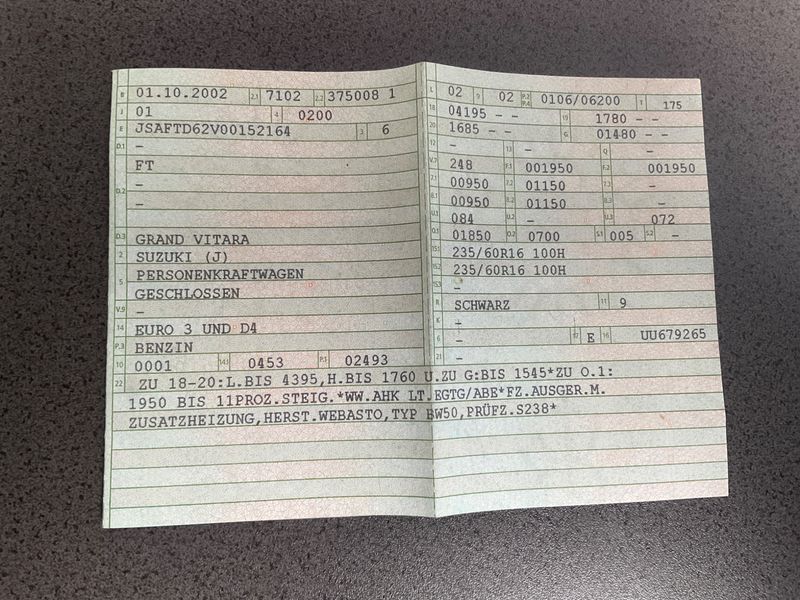 B 01.10.2002 2.1 7102 2.2 375008 1
J 01 4 0200
E JSAFTD62V00152164 3 6
D.1 -
FT
D.2 -
-
D.3 GRAND VITARA
2 SUZUKI (J)
5 PERSONENKRAFTWAGEN
GESCHLOSSEN
V.9 -
14 EURO 3 UND D4
P.3 BENZIN
10 0001 14.1 0453 P.1 02493
L 02 9 02 P.2 P.4 0106/06200 T 175
18 04195 - - 19 1780 - -
20 1685 - - G 01480 - -
12 - 13 - Q -
V.7 248 F.1 001950 F.2 001950
7.1 00950 7.2 01150 7.3 -
8.1 00950 8.2 01150 8.3 -
U.1 084 U.2 - U.3 072
O.1 01850 O.2 0700 S.1 005 S.2 -
15.1 235/60R16 100H
15.2 235/60R16 100H
15.3 -
R SCHWARZ 11 9
K -
6 - 17 E 16 UU679265
21 -
22 ZU 18-20:L.BIS 4395,H.BIS 1760 U.ZU G:BIS 1545*ZU O.1:
1950 BIS 11PROZ.STEIG.*WW.AHK LT.EGTG/ABE*FZ.AUSGER.M.
ZUSATZHEIZUNG,HERST.WEBASTO,TYP BW50,PRÜFZ.S238*